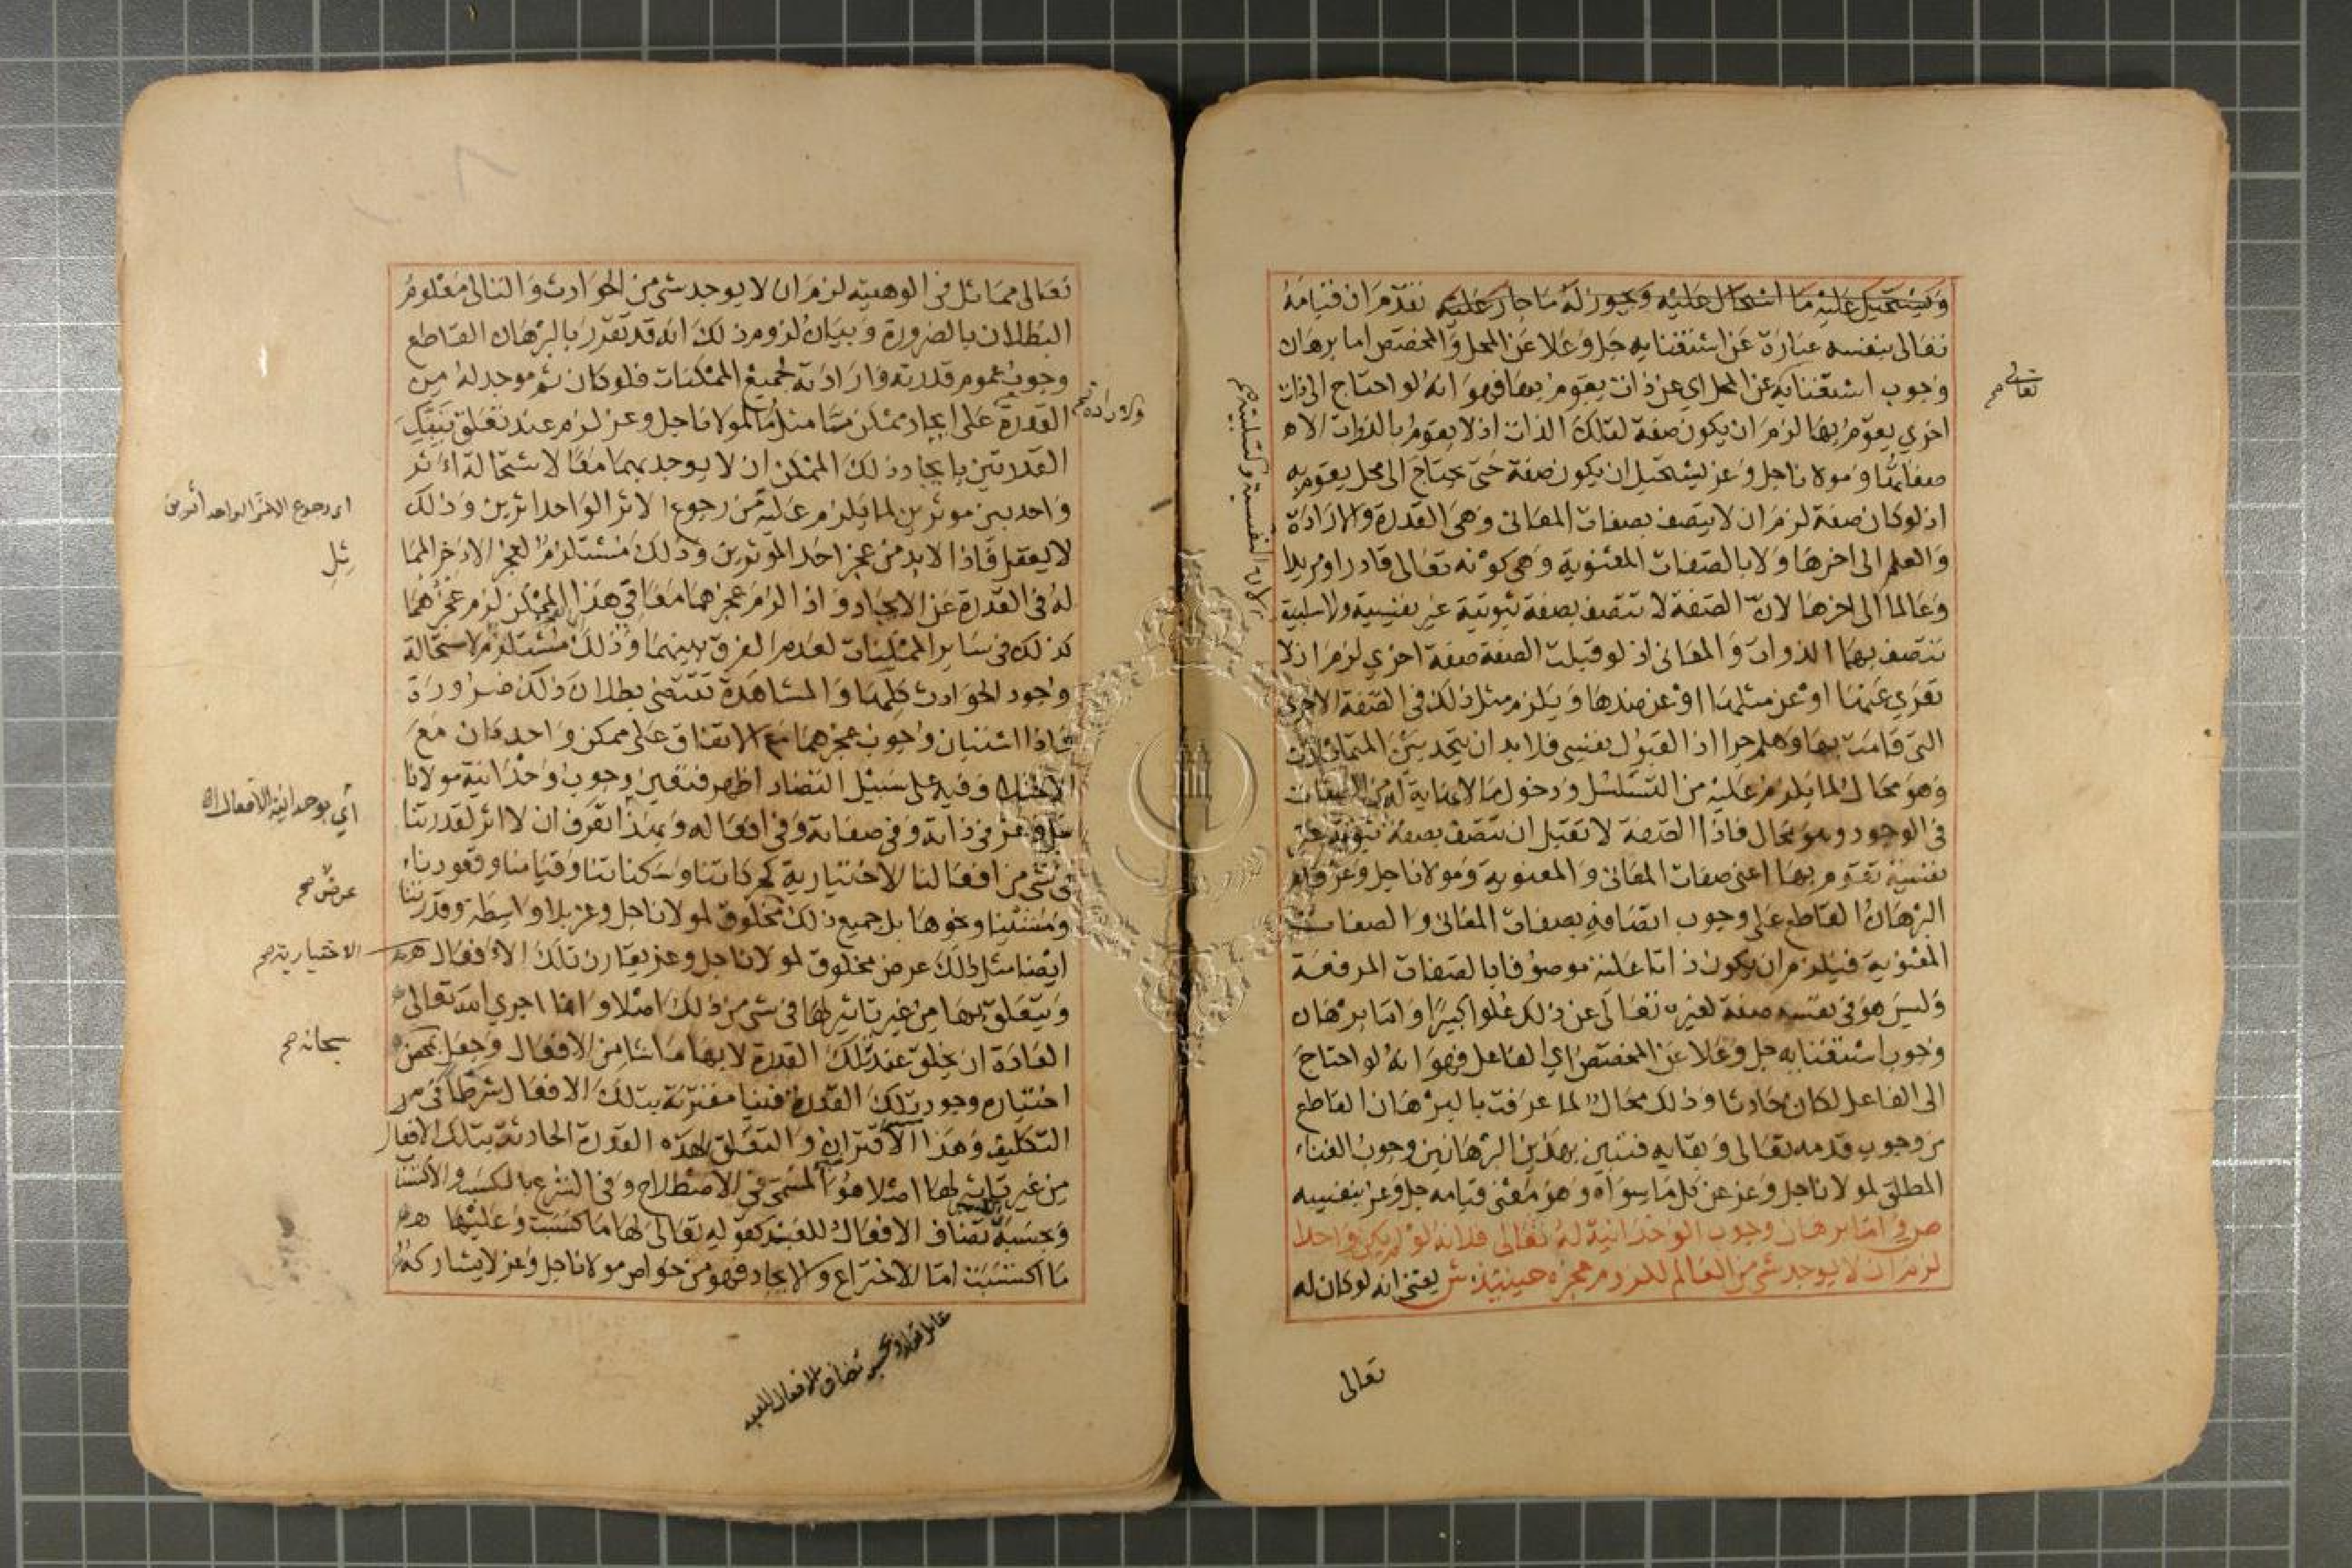 وَيَسْتَحِيل عَليْه مَا اسْتحَال عَليْه وَيَجُوز لَهُ مَا جاز عَليْه تقدّم ان قيامَهُ
تعالى بنفسه عبَارَة عَن استغنائه جل وَعَلا عَن المحل وَالمخصّص اما برهان
وجوب استغنائه عن المحل اي عن ذات يقوم بها فهو انه لو احتاج الى ذات
اخري يقوم بها لزم ان يكون صفة لتلك الذات اذ لا يقوم بالذوات الا
صفاتها ومولانا جل وعز يستحيل ان يكون صفة حتى يحتاج الى محل يقوم به
اذ لو كان صفة لزم ان لا يتصف بصفات المعانى وهى القدرة والارادة
والعلم الى اخرها ولا بالصفات المعنوية وهى كونه تعالى قادرا ومريدا
وعالما الى اخرها لانّ الصفة لا تتصف بصفة ثبوتية غير نفسية ولا سلبية
تتصف بهما الذوات والمعانى اذ لو قبلت الصفة صفة اخري لزم ان لا
تعري عنها او عن مثلها او عن ضدها ويلزم مثل ذلك فى الصفة الاخرى
التى قامت بها وهلم جرا اذ القبول نفسى فلا بد ان يتحد بين المتماثلات
وهو محال لما يلزم عليه من التسلسل ودخول ما لا نهاية له من الصفات
فى الوجود وهو محال فاذا الصفة لا تقبل ان تتصف بصفة ثبوتية غير
نفسية تقوم بها اعنى صفات المعانى والمعنوية ومولانا جل وعز قام
البرهان القاطع على وجوب اتصافه بصفات المعانى والصفات
المعنوية فيلزم ان يكون ذاتا علية موصوفا بالصفات المرفعة
وليس هو فى نفسه صفة لغيره تعالى عن ذلك علوا كبيرا واما برهان
وجوب استغنائه جل وعلا عن المخصص اي الفاعل فهو انه لو احتاج
الى الفاعل لكان حادثا وذلك محال لما عرفت بالبرهان القاطع
من وجوب قدمه تعالى وبقايه فتبين بهذين البرهانين وجوب الغناء
المطلق لمولانا جل وعز عن كل ما سواه وهو معنى قيامه جل وعز بنفسه
ص واما برهان وجوب الوحدانية له تعالى فلانه لو لم يكن واحدا
لزم ان لا يوجد شى من العالم للزوم عجزه حينيذ ش يعنى انه لو كان له
تعالى
تعالى صح
تعالى مماثل فى الوهيته لزم ان لا يوجد شى من الحوادث والتالى معلوم
البطلان بالضرورة وبيان لزوم ذلك انه قد تقرر بالبرهان القاطع
وجوب عموم قدرته وارادته لجميع الممكنات فلو كان ثم موجد له من
القدرة على ايجاد ممكن ما مثل ما لمولانا جل وعز لزم عند تعلق تينك
القدرتين بايجاد ذلك الممكن ان لا يوجد بهما معا لاستحالة اثر
واحد بين موثرين لما يلزم عليه من رجوع الاثر الواحد اثرين وذلك
لا يعقل فاذا لا بد من عجز احد الموثرين وذلك مستلزم لعجز الاخر المما
له فى القدرة عن الايجاد واذا لزم عجزهما معا في هذا الممكن لزم عجزهما
كذلك فى ساير الممكنات لعدم الفرق بينهما وذلك مستلزم لاستحالة
وجود الحوادث كلها والمشاهدة تقتضى بطلان ذلك ضرورة
فاذا استبان وجوب عجزهما مع الاتفاق على ممكن واحد كان مع
الاختلاف وفيه على سبيل التضاد اظهر فتعين وجوب وحدانية مولانا
جل وعز فى ذاته وفى صفاته وفى افعاله وبهذا تعرف ان لا اثر لقدرتنا
فى شى من افعالنا الاختيارية كحركاتنا وسكناتنا وقيامنا وقعودنا
ومشينا ونحوها بل جميع ذلك مخلوق لمولانا جل وعز بلا واسطة وقدرتنا
ايضا مثل ذلك عرض مخلوق لمولانا جل وعز يقارن تلك الافعال
ويتعلق بها من غير تاثير لها فى شى من ذلك اصلا وانما اجري الله تعالى
العادة ان يخلق عند تلك القدرة لا بها ما شا من الافعال وجعل بمحض
اختياره وجود تلك القدرة فينا مقترنة بتلك الافعال شرطا فى
التكليف وهذا الاقتران والتعلق لهذه القدرة الحادثة بتلك الافعال
من غير تاثير لها اصلا هو المسمى في الاصطلاح وفى الشرع بالكسب والاكتسا
وبحسبه تضاف الافعال للعبد كقوله تعالى لها ما كسبت وعليها
ما اكتسبت اما الاختراع والايجاد فهو من خواص مولانا جل وعز لا يشاركه
والارادة صح
اى رجوع الاثر الواحد أثرين
ثل
أي بوحدانية الافعال
عرض صح
الاختيارية صح
سبحانه صح